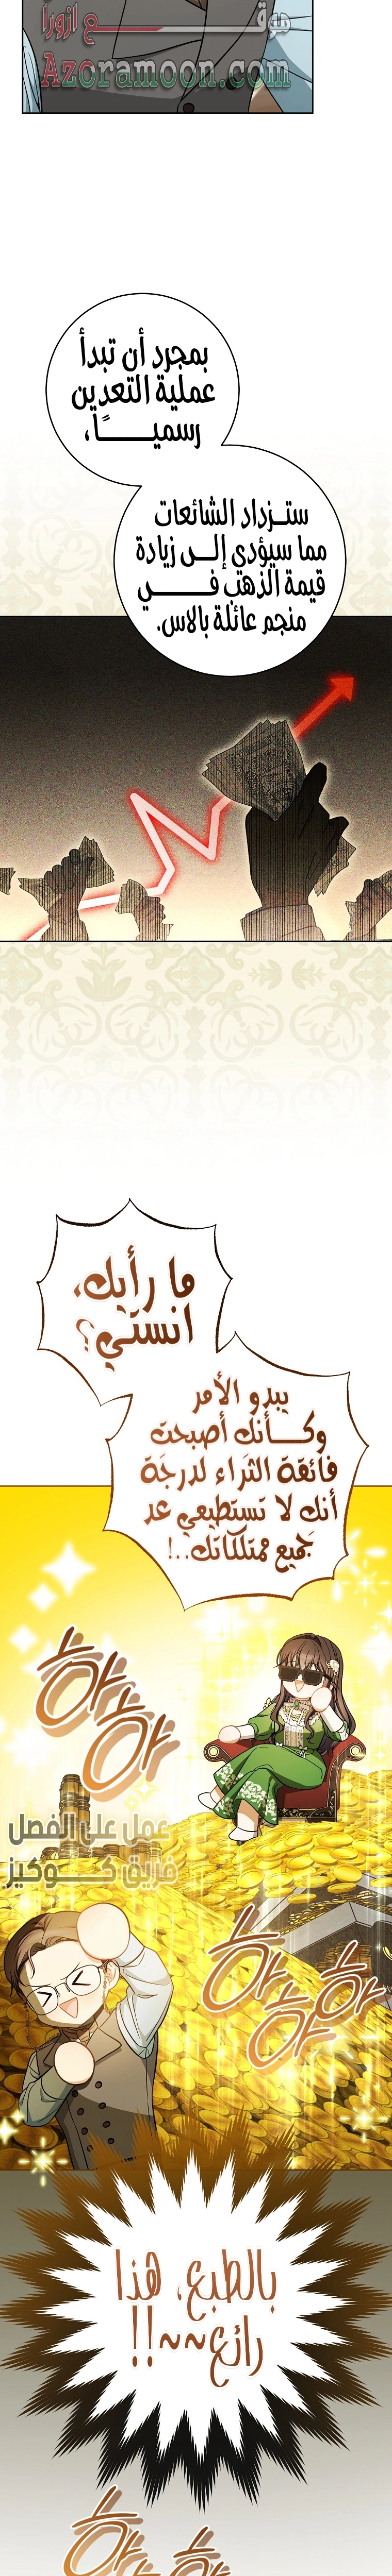 موقـــــع ازورا
Azoramoon.com
بمجرد أن تبدأ
عملية التعدين
رسميـــــاً،
ستـزداد الشائعات
مما سيؤدي إلــى زيادة
قيمة الذهب فـــــي
منجم عائلة بالاس.
ما رأيك،
انستي؟
يبدو الأمر
وكـــأنك أصبحت
فائقة الثراء لدرجة
أنك لا تستطيعي عد
جميع ممتلكاتك..!
하
하
عمل على الفصل
فريق كـــوكيز
하 하
하
بالطبع، هذا
رائع~~!!
하
하